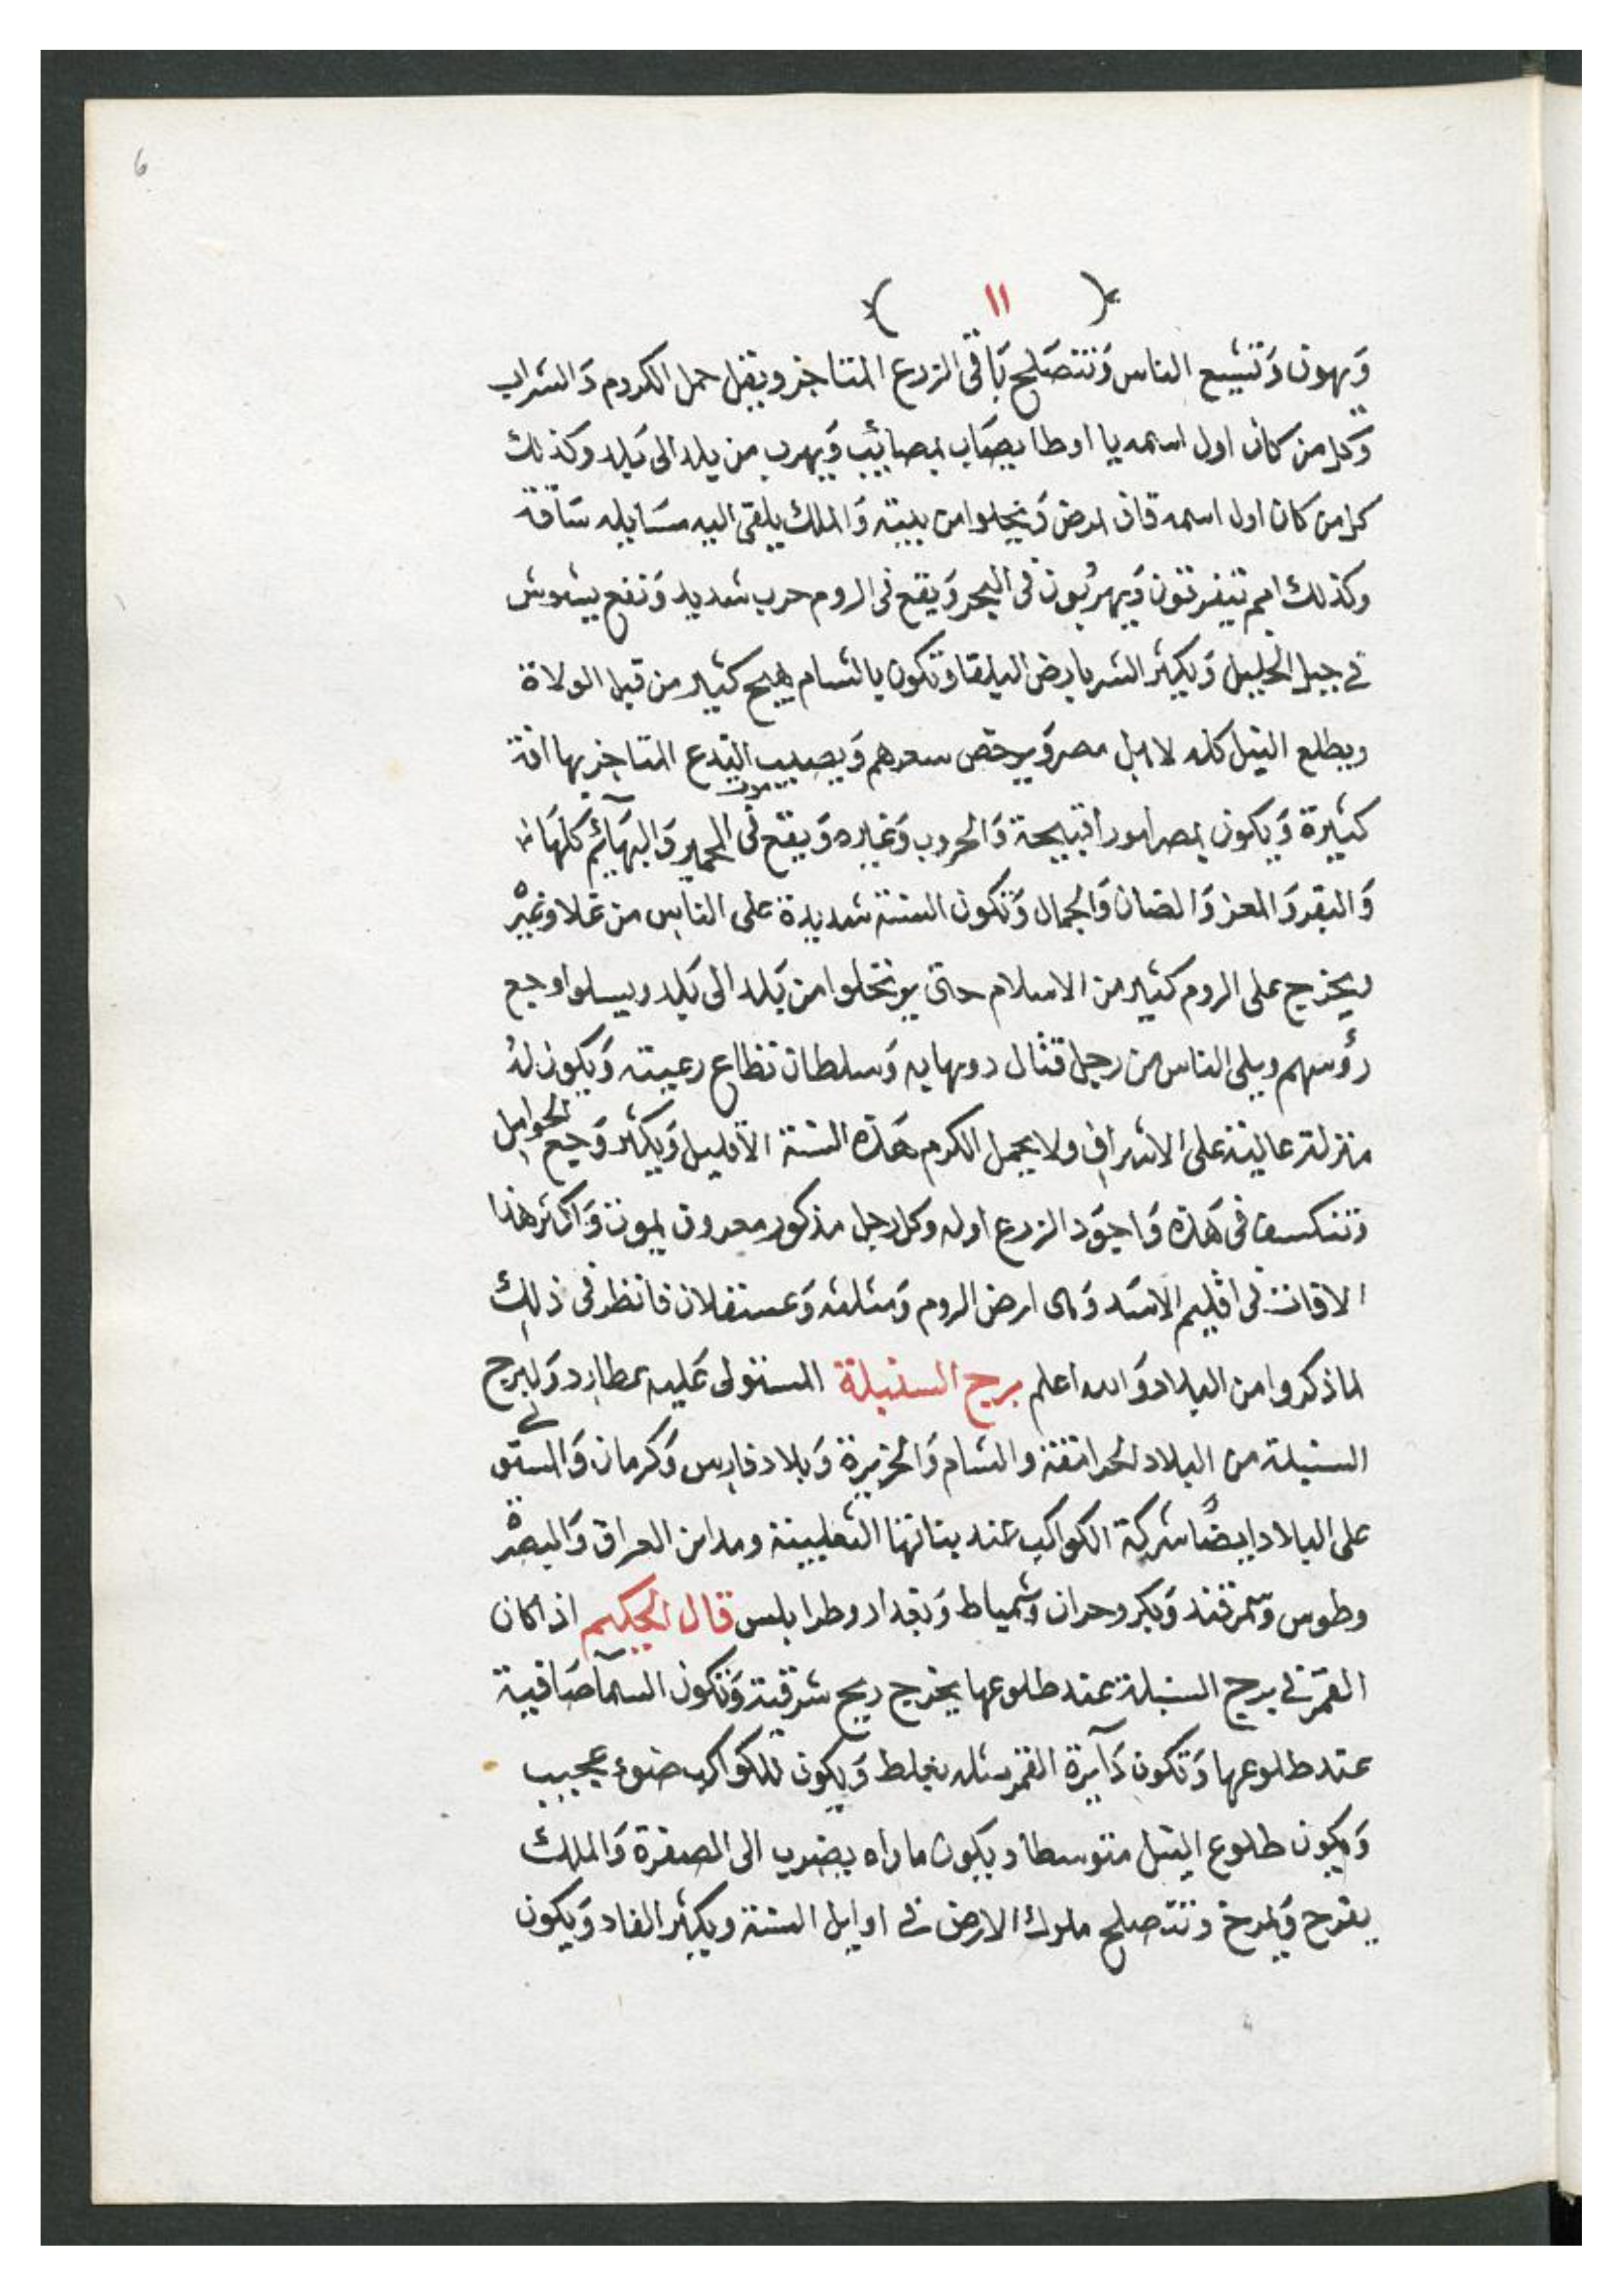 6
( ١١ )
وَيهون وَتشبع الناس وَتتصَلح بَاقى الزرع المتاخر ويقل حمل الكروم وَالشراب
وَكل من كان اول اسمه يا اوطا يصَاب بمصائب وَيهرب من بلد الى بَلد وكذلك
كل من كان اول اسمه قاف بمرض وَينجلوا من بيته وَالملك يلقى اليه مسَايله سَاقة
وكذلك امم تتفرتون وَيهربُون فى البحر وَيقع فى الروم حرب شديد وَتقع بشوش
فى جبل الخليل وَيكثر الشر بارض البلقا وتكون بالشام هيج كثير من قبل الولاة
ويطلع النيل كله لاهل مصر وَيرخص سعرهم وَيصيب الزرع المتاخر بها افة
كثيرة وَيكون بمصر امورا قبيحة وَالحروب وَغيره وَيقع فى الحمير وَالبهَآئم كلهَا
موت
وَالبقر وَالمعز وَالضان وَالجمال وَتكون السنة شديدة على الناس من غلا وغيره
ويخرج على الروم كثير من الاسلام حتى يرتحلوا من بَلد الى بَلد ويسلوا وجع
رؤسهم ويلى الناس من رجل قتال دومهابه وَسلطان تطاع رعيته وَيكون لهُ
منزلة عالية على الاشراف ولا يحمل الكرم هَذه السنة الا قليل وَيكثر وَجع الحوامل
وتنكسف فى هَذه وَاجوَد الزرع اوله وكل رجل مذكور معروف يموت وَاكثر هذا
الافات فى اقليم الاسَد وَهى ارض الروم وَمثلثه وَعسقلان فانظر فى ذلك
لما ذكروا من البلاد وَالله اعلم برج السنبلة المستولى عَليه عطارد وَلبرج
السنبلة من البلاد لحرامقة والشام وَالجزيرة وَبلاد فارس وَكرمان وَالمستولى
على البلاد ايضًا شركة الكواكب عند بناتها الثعلبية ومداين العراق وَالبصرة
وطوس وَسمرقند وَبكر وحران وَشمياط وَبغداد وطرابلس قال الحكيم اذا كان
القمَر فى برج السنبلة عند طلوعها يخرج ريح شرقية وَتكون السمآ صَافية
عند طلوعها وَتكون دَآيرة القمر مثله بغلط وَيكون للكواكب ضوء عجيب
وَيكون طلوع النيل متوسطا ويكون ماواه يضرب الى الصفرة وَالملك
يفرح وَيمرح وتتصلح ملوك الارض فى اوايل السنة ويكثر الفاد وَيكون